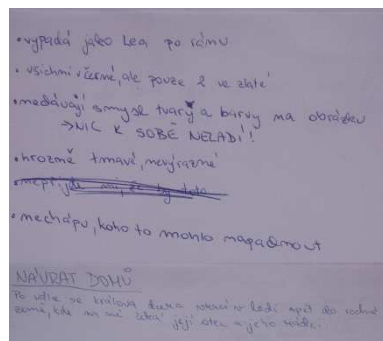 • vypadá jako Lea po ránu
• všichni v černé, ale pouze 2 ve zlaté
• nedávájí smysl tvarý a barvy na obrázku
→ NIC K SOBĚ NELADÍ!
• hrozně tmavé, nevýrazné
• nechápu, koho to mohlo napadnout
NÁVRAT DOMŮ
Po válce se králova dcera vrací v lodi zpět do rodné
země, kde na ní čeká její otec a jeho